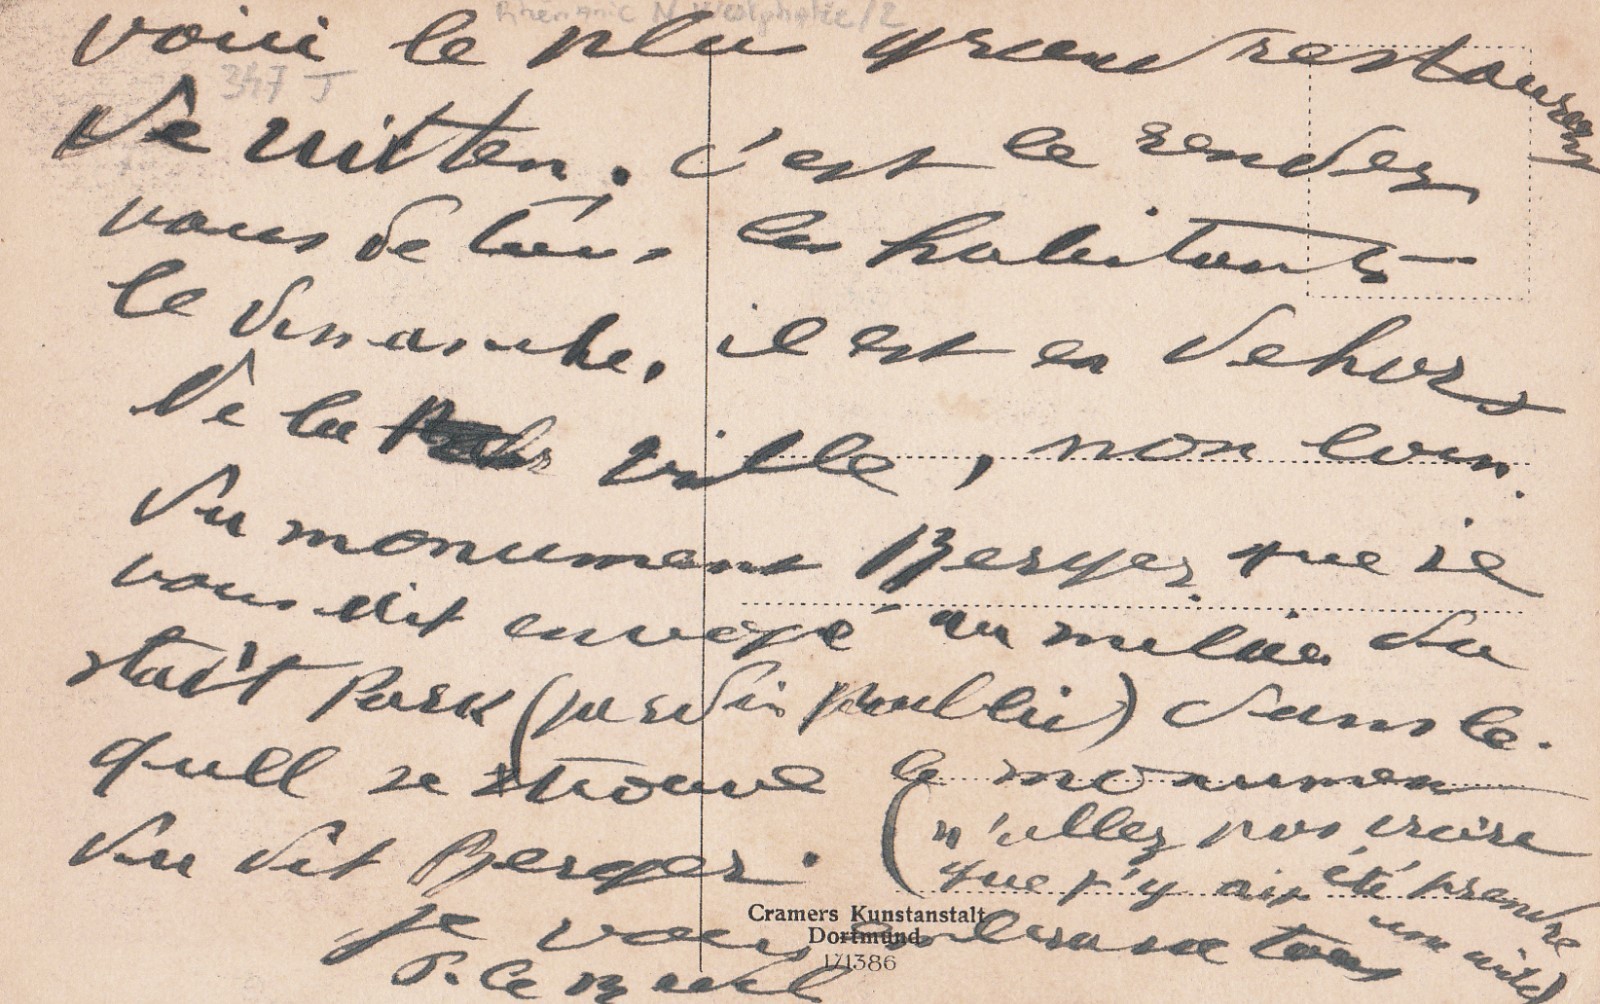 Rhénanie N Westphalie/2
347 J
voici le plus grand restaurant
de Witten. c'est le rendez
vous de tous les habitants
le dimanche, il est en dehors
de la ville, non loin
du monument Berger que je
vous dit envoyé au milieu du
stadt Park (jardin publie) dans le
quell se trouve le monumen
du dit Berger. (n'allez pas croire
que j'y aip été prendre
une
je vous embrasse tous
P. Le
Cramers Kunstanstalt
Dortmund
1/1386